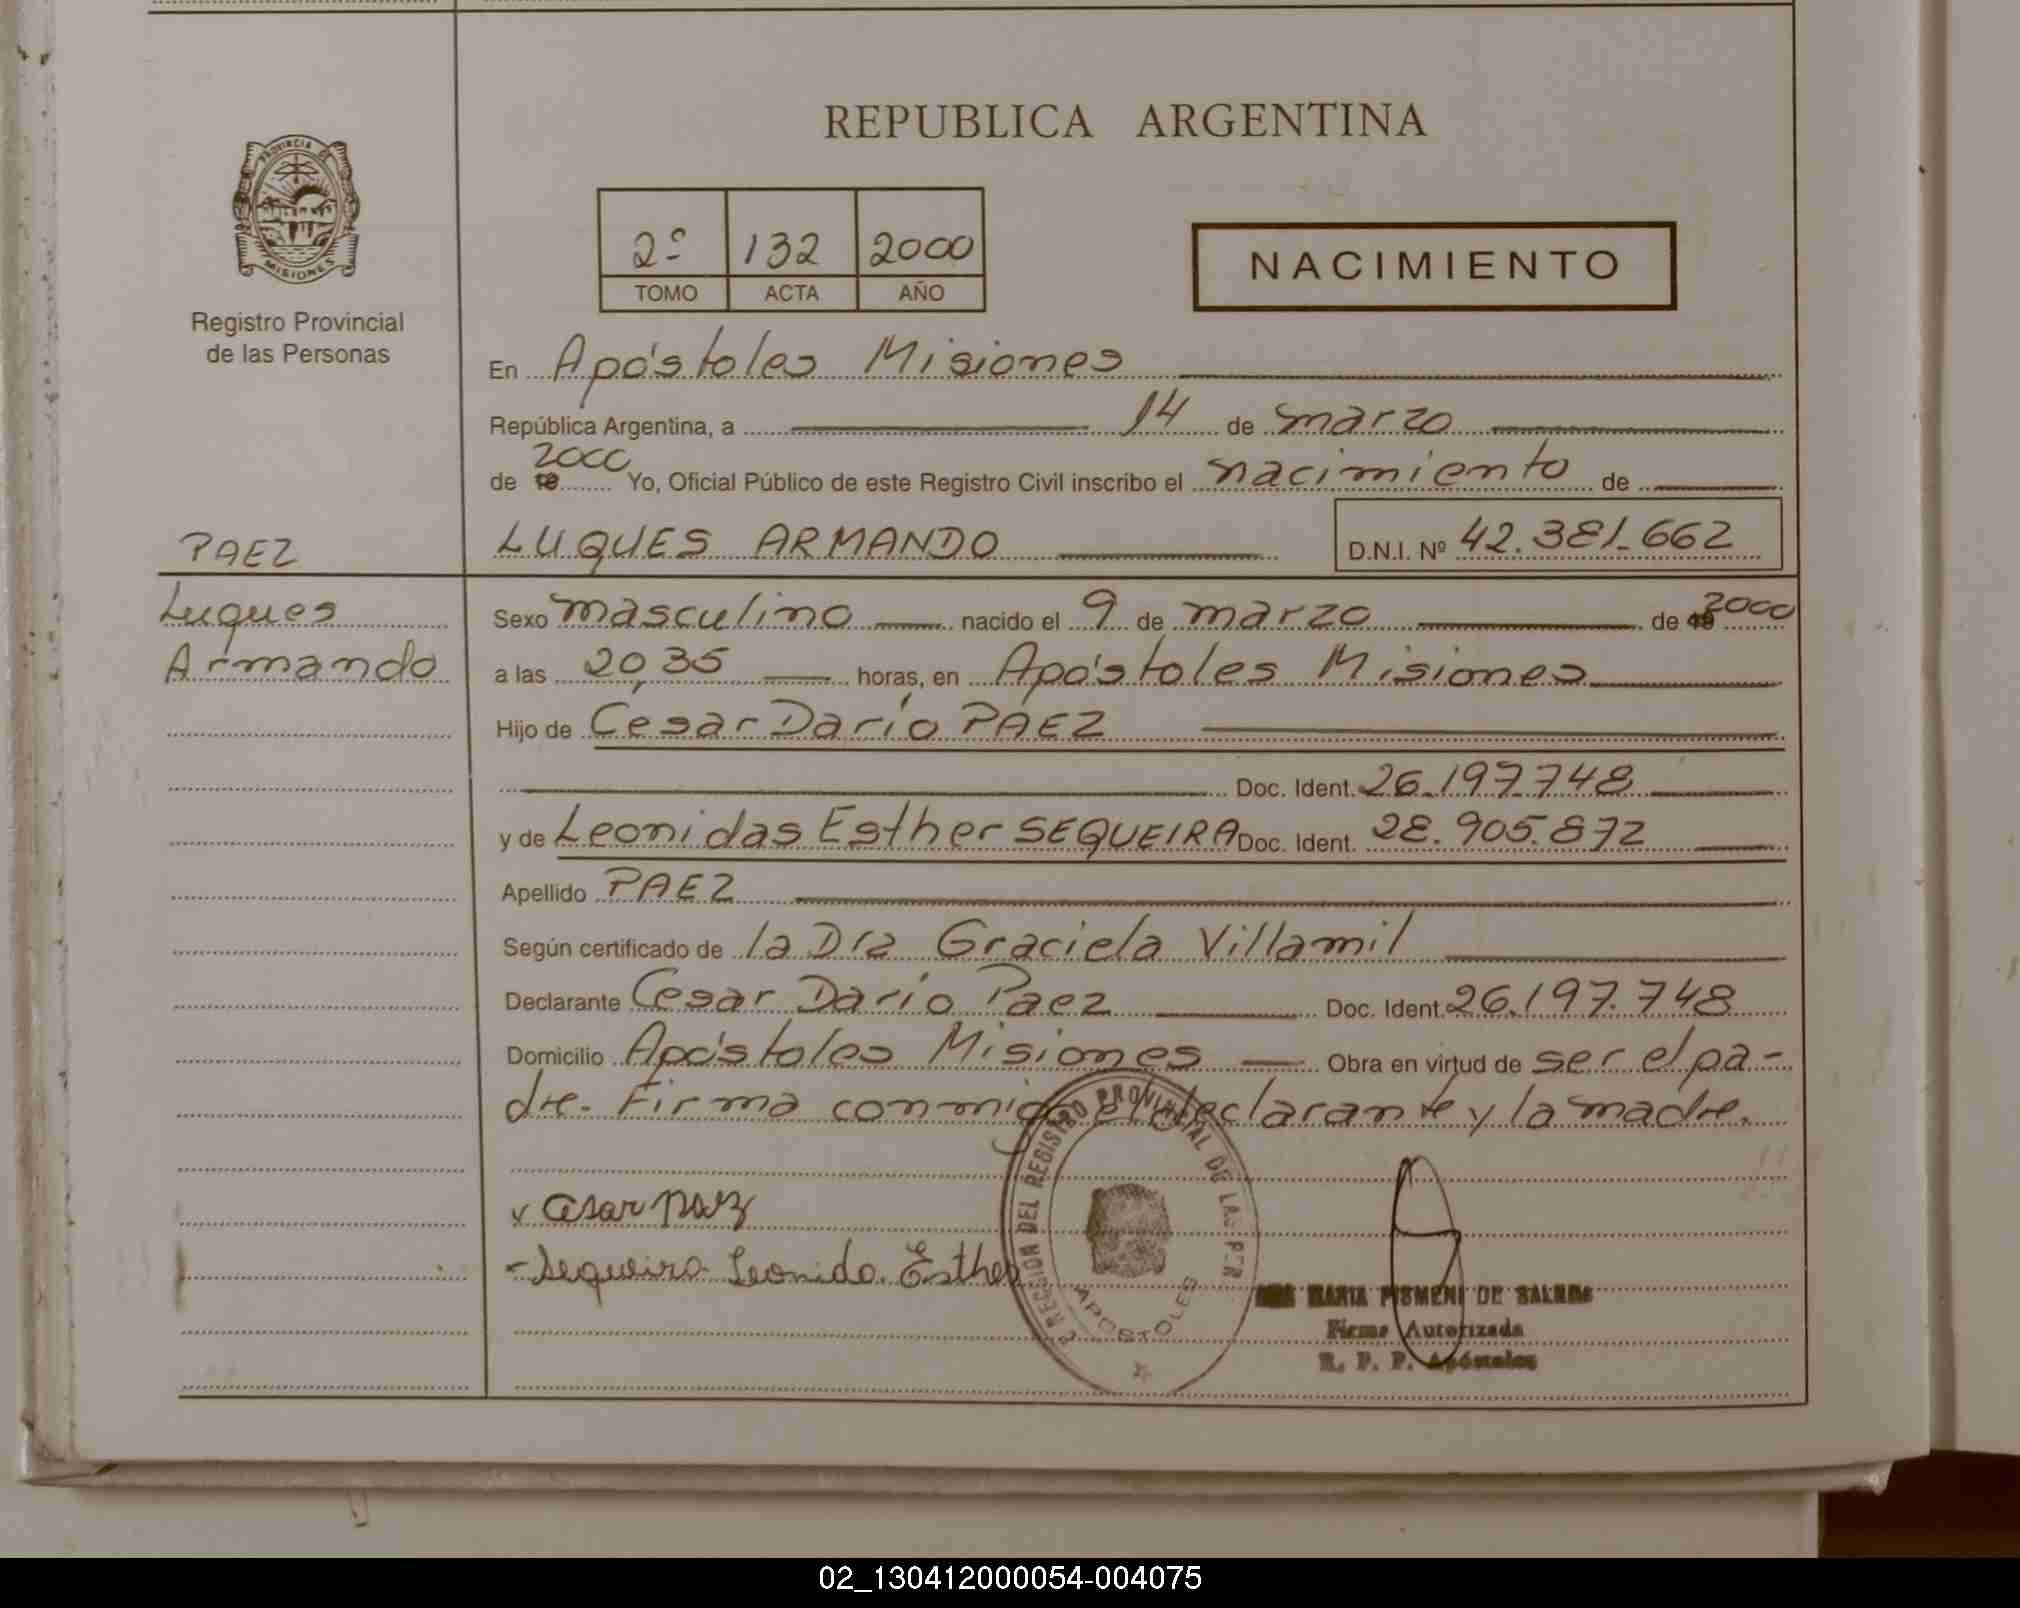 PROVINCIA DE
MISIONES
Registro Provincial
de las Personas
REPUBLICA ARGENTINA
2º 132 2000
TOMO ACTA AÑO
NACIMIENTO
En Apóstoles Misiones
República Argentina, a 14 de marzo
2000
de Yo, Oficial Público de este Registro Civil inscribo el nacimiento de
PAEZ LUQUES ARMANDO D.N.I. Nº 42.381.662
Luques
Armando
Sexo masculino nacido el 9 de marzo de 2000
a las 20,35 horas, en Apóstoles Misiones
Hijo de César Darío PAEZ
Doc. Ident. 26.197.748
y de Leonidas Esther SEQUEIRA Doc. Ident. 28.905.872
Apellido PAEZ
Según certificado de la Dra Graciela Villamil
Declarante Cesar Darío Paez Doc. Ident. 26.197.748
Domicilio Apóstoles Misiones Obra en virtud de ser el pa-
dre. Firma conmigo el declarante y la madre.
REGION DEL REGISTRO PROVINCIAL DE LAS PER
APOSTOLES
Cesar Paez
- Sequeira Leonida Esther
MARIA PISMENI DE
Firma Autorizada
R. P. P. Apóstoles
02_130412000054-004075